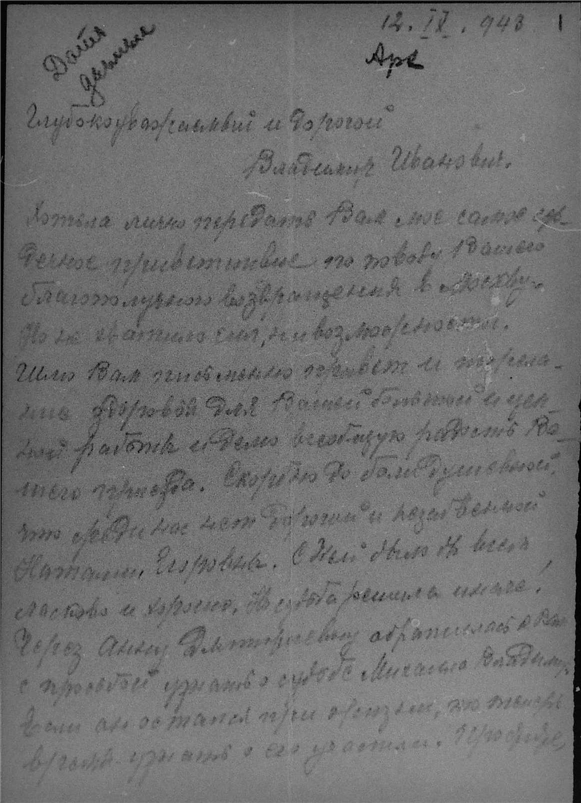 12. IX. 943 1
Арх
Глубокоуважаемый и дорогой
Владимир Иванович.
Хотела лично передать Вам мое самое сер-
дечное приветствие по поводу Вашего
благополучного возвращения в Москву.
Но не хватило сил, ни возможности.
Шлю Вам письменно привет и пожела-
ния здоровья для Вашей большой и цен
ной работы и делю всеобщую радость Ва-
шего приезда. Скорблю до боли душевной,
что среди нас нет дорогой и незабвенной
Наталии Егоровны. С Ней было бы всем
ласково и хорошо. Но судьба решила иначе!
Через Анну Дмитриевну обратилась к Вам
с просьбой узнать о судьбе Михаила Владимир
Если он остался при жизни, то теперь
время узнать о его участии.